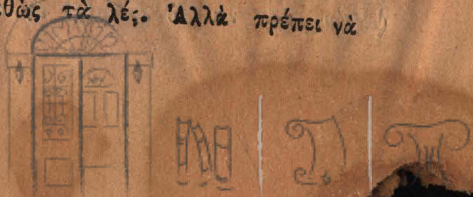 θὼς τὰ λές. Ἀλλὰ πρέπει νὰ